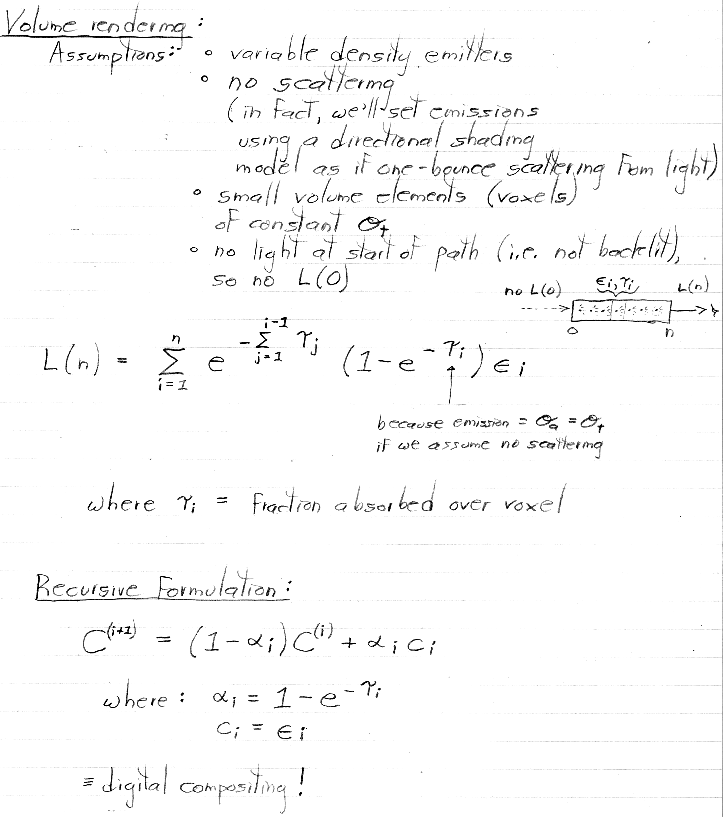 Volume rendering:
Assumptions: ∘ variable density emitters
∘ no scattering
(in fact, we'll set emissions
using a directional shading
model as if one-bounce scattering from light)
∘ small volume elements (voxels)
of constant σₜ
∘ no light at start of path (i.e. not backlit),
so no L(0)
no L(0) εᵢ, τᵢ L(n)
0 n
L(n) = Σ_{i=1}^{n} e^{-Σ_{j=1}^{i-1} τⱼ} (1-e^{-τᵢ}) εᵢ
because emission = σₐ = σₜ
if we assume no scattering
where τᵢ = fraction absorbed over voxel
Recursive Formulation:
C^{(i+1)} = (1-αᵢ)C^{(i)} + αᵢ cᵢ
where: αᵢ = 1-e^{-τᵢ}
cᵢ = εᵢ
≡ digital compositing!